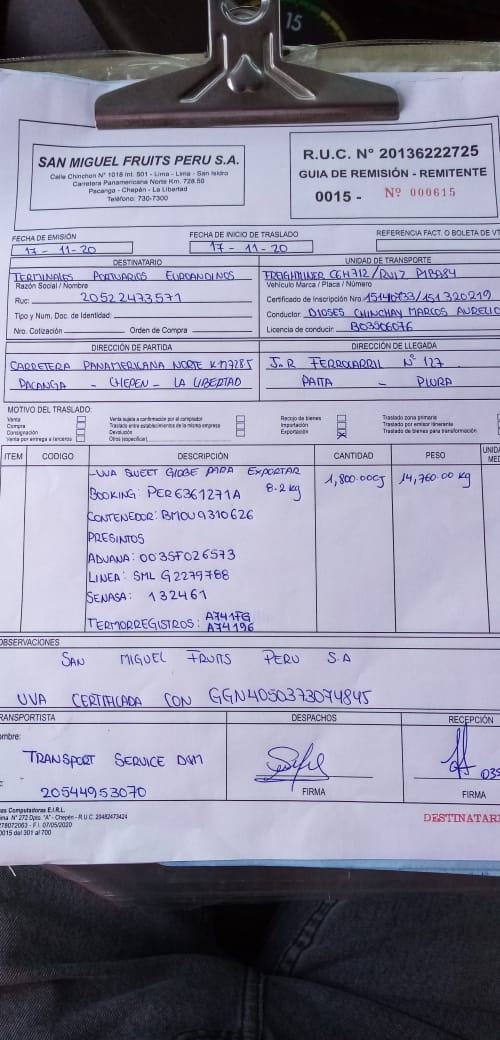 15
SAN MIGUEL FRUITS PERU S.A.
Calle Chinchon N° 1018 Int. 501 - Lima - Lima - San Isidro
Carretera Panamericana Norte Km. 728.50
Pacanga - Chepén - La Libertad
Teléfono: 730-7300
R.U.C. N° 20136222725
GUIA DE REMISIÓN - REMITENTE
0015 - Nº 000615
FECHA DE EMISIÓN
17 - 11 - 20
FECHA DE INICIO DE TRASLADO
17 - 11 - 20
REFERENCIA FACT. O BOLETA DE VT
DESTINATARIO
TERMINALES PORTUARIOS EUROANDINOS
Razón Social / Nombre
Ruc: 20522473571
Tipo y Num. Doc. de Identidad:
Nro. Cotización Orden de Compra
UNIDAD DE TRANSPORTE
FREIGHTLINER C6H712/RUIZ P1B984
Vehículo Marca / Placa / Número
Certificado de Inscripción Nro. 15140733/151320219
Conductor DIOSES CHINCHAY MARCOS AURELIO
Licencia de conducir B03906076
DIRECCIÓN DE PARTIDA
CARRETERA PANAMERICANA NORTE KM7285
PACANGA - CHEPEN - LA LIBERTAD
DIRECCIÓN DE LLEGADA
J.R FERROCARRIL N° 127
PAITA - PIURA
MOTIVO DEL TRASLADO:
Venta
Compra
Consignación
Venta por entrega a terceros
Venta sujeta a confirmación por el comprador
Traslado entre establecimientos de la misma empresa
Devolución
Otros (especificar)
Recojo de bienes
Importación
Exportación X
Traslado zona primaria
Traslado por emisor itinerante
Traslado de bienes para transformación
ITEM CODIGO DESCRIPCIÓN CANTIDAD PESO UNIDA MED
-UVA SWEET GLOBE PARA EXPORTAR 1,800.00CJ 14,760.00 kg
BOOKING: PER6361271A 8.2 kg
CONTENEDOR: BMOU9310626
PRESINTOS
ADUANA: 003SF026573
LINEA: SML G2279788
SENASA: 132461
TERMORREGISTROS: A741FG
A74196
OBSERVACIONES
SAN MIGUEL FRUITS PERU S.A
UVA CERTIFICADA CON GGN4050373074845
TRANSPORTISTA
ombre:
TRANSPORT SERVICE D&M
20544953070
DESPACHOS
FIRMA
RECEPCIÓN
035
FIRMA
as Computadoras E.I.R.L.
ima N° 272 Dpto. "A" - Chepén - R.U.C. 20482473424
278072063 - F.I. 07/05/2020
0015 del 301 al 700
DESTINATARI